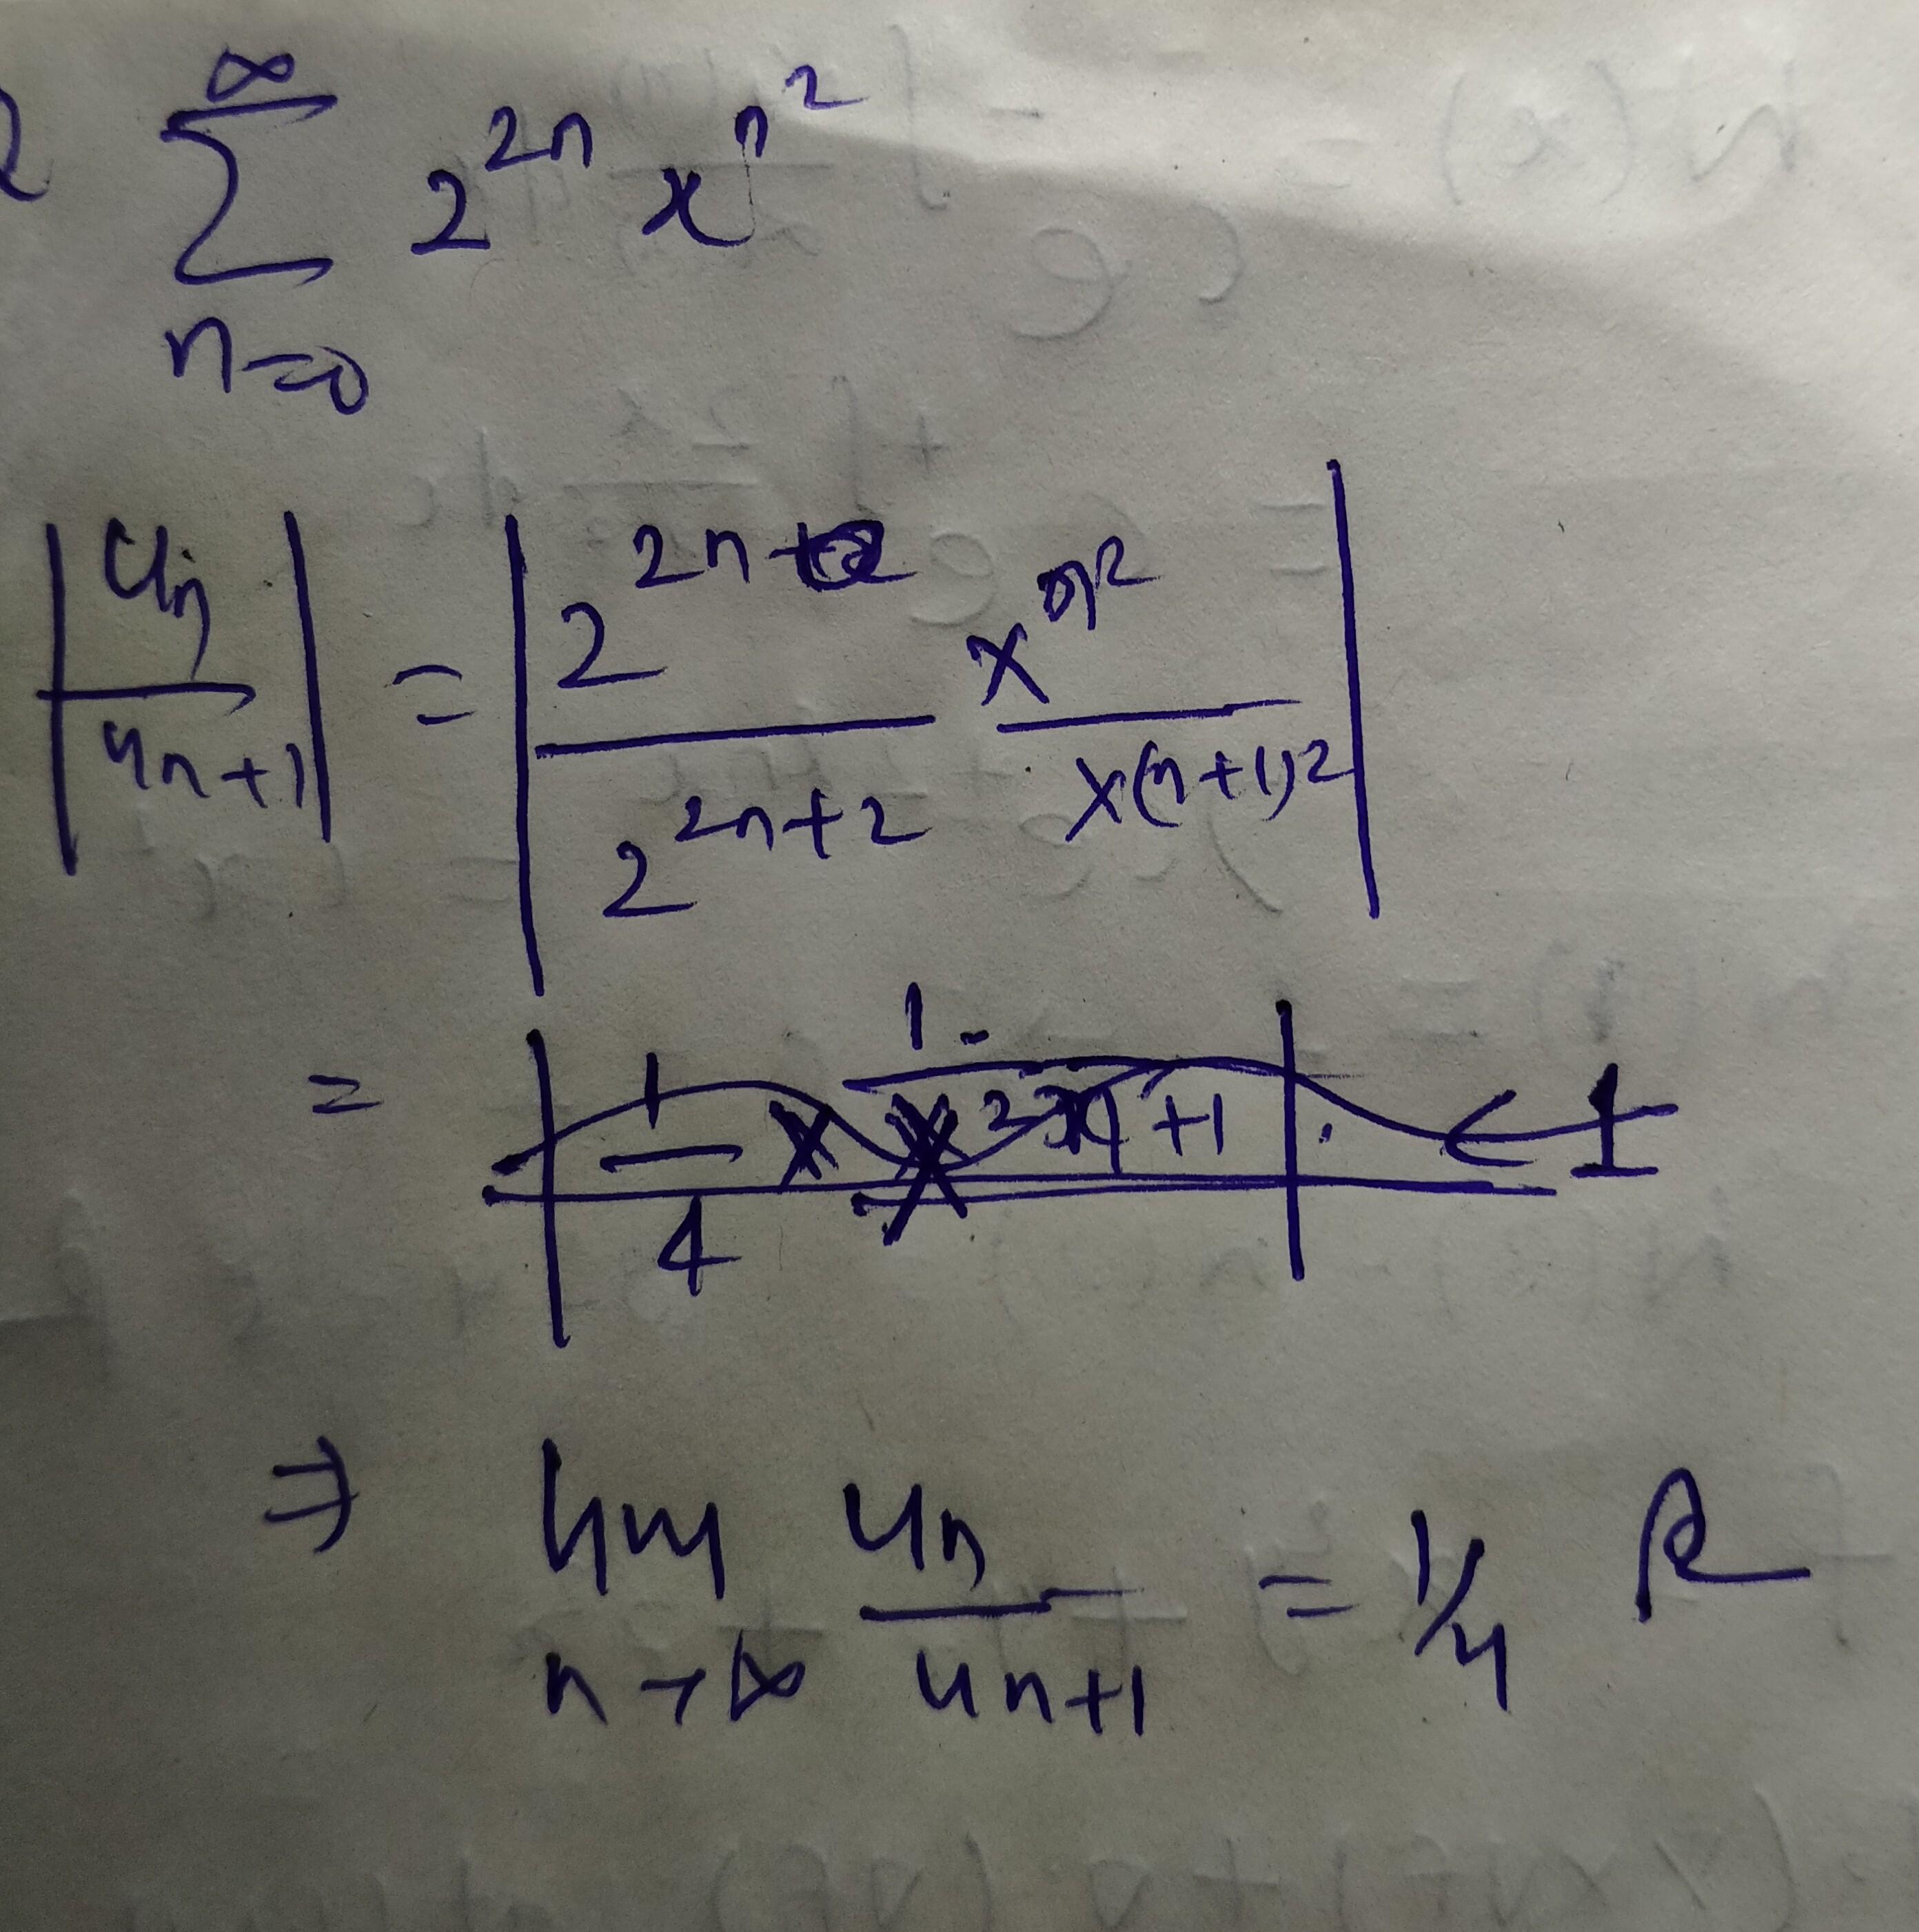 ∞
∑ 2^{2n} x^{n^2}
n=0
|u_n / u_{n+1}| = |2^{2n} / 2^{2n+2} x^{n^2} / x^{(n+1)^2}|
= |1/4 × 1 / x^{2n+1}| < 1
⇒ lim_{n→∞} u_n / u_{n+1} = 1/4 R